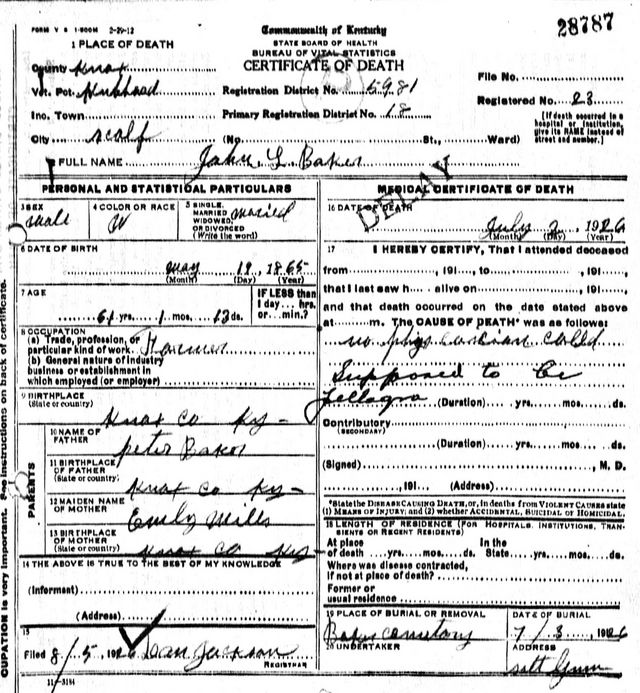 FORM V S 1-500M 2-29-12
28787
Commonwealth of Kentucky
STATE BOARD OF HEALTH
BUREAU OF VITAL STATISTICS
CERTIFICATE OF DEATH
1 PLACE OF DEATH
County Knox
Vot. Pct. Kirkhead
Inc. Town
City Scalf (No. St., Ward)
Registration District No. 5981
Primary Registration District No. 18
File No.
Registered No. 23
[If death occurred in a hospital or institution, give its NAME instead of street and number.]
FULL NAME John L. Baker
DELAY
PERSONAL AND STATISTICAL PARTICULARS
3 SEX Male
4 COLOR OR RACE W
5 SINGLE, MARRIED, WIDOWED, OR DIVORCED (Write the word) Married
6 DATE OF BIRTH
May 19, 1865
(Month) (Day) (Year)
7 AGE
61 yrs. 1 mos. 13 ds.
IF LESS than 1 day... hrs. or... min.?
8 OCCUPATION
(a) Trade, profession, or particular kind of work Farmer
(b) General nature of industry business or establishment in which employed (or employer)
9 BIRTHPLACE
(State or country)
Knox Co Ky
PARENTS
10 NAME OF FATHER Peter Baker
11 BIRTHPLACE OF FATHER (State or country) Knox Co Ky
12 MAIDEN NAME OF MOTHER Emily Mills
13 BIRTHPLACE OF MOTHER (State or country) Knox Co Ky
14 THE ABOVE IS TRUE TO THE BEST OF MY KNOWLEDGE
(Informant)
(Address)
15
Filed 8/5, 1926 Dan Jackson
REGISTRAR
11-3184
MEDICAL CERTIFICATE OF DEATH
16 DATE OF DEATH
July 2, 1926
(Month) (Day) (Year)
17 I HEREBY CERTIFY, That I attended deceased
from ..., 191..., to ..., 191...,
that I last saw h... alive on ..., 191...,
and that death occurred on the date stated above
at ... m. The CAUSE OF DEATH* was as follows:
no physician calld
Supposed to be
Pellagra (Duration) yrs. mos. ds.
Contributory
(SECONDARY)
(Duration) yrs. mos. ds.
(Signed) M. D.
191... (Address)
*State the DISEASE CAUSING DEATH, or, in deaths from VIOLENT CAUSES state (1) MEANS OF INJURY; and (2) whether ACCIDENTAL, SUICIDAL OR HOMICIDAL.
18 LENGTH OF RESIDENCE (FOR HOSPITALS, INSTITUTIONS, TRANSIENTS OR RECENT RESIDENTS)
At place of death yrs. mos. ds. In the State yrs. mos. ds.
Where was disease contracted, if not at place of death?
Former or usual residence
19 PLACE OF BURIAL OR REMOVAL
Baker Cemetory
DATE OF BURIAL
7/3, 1926
20 UNDERTAKER
ADDRESS
Salt Gum
CUPATION is very important. See instructions on back of certificate.